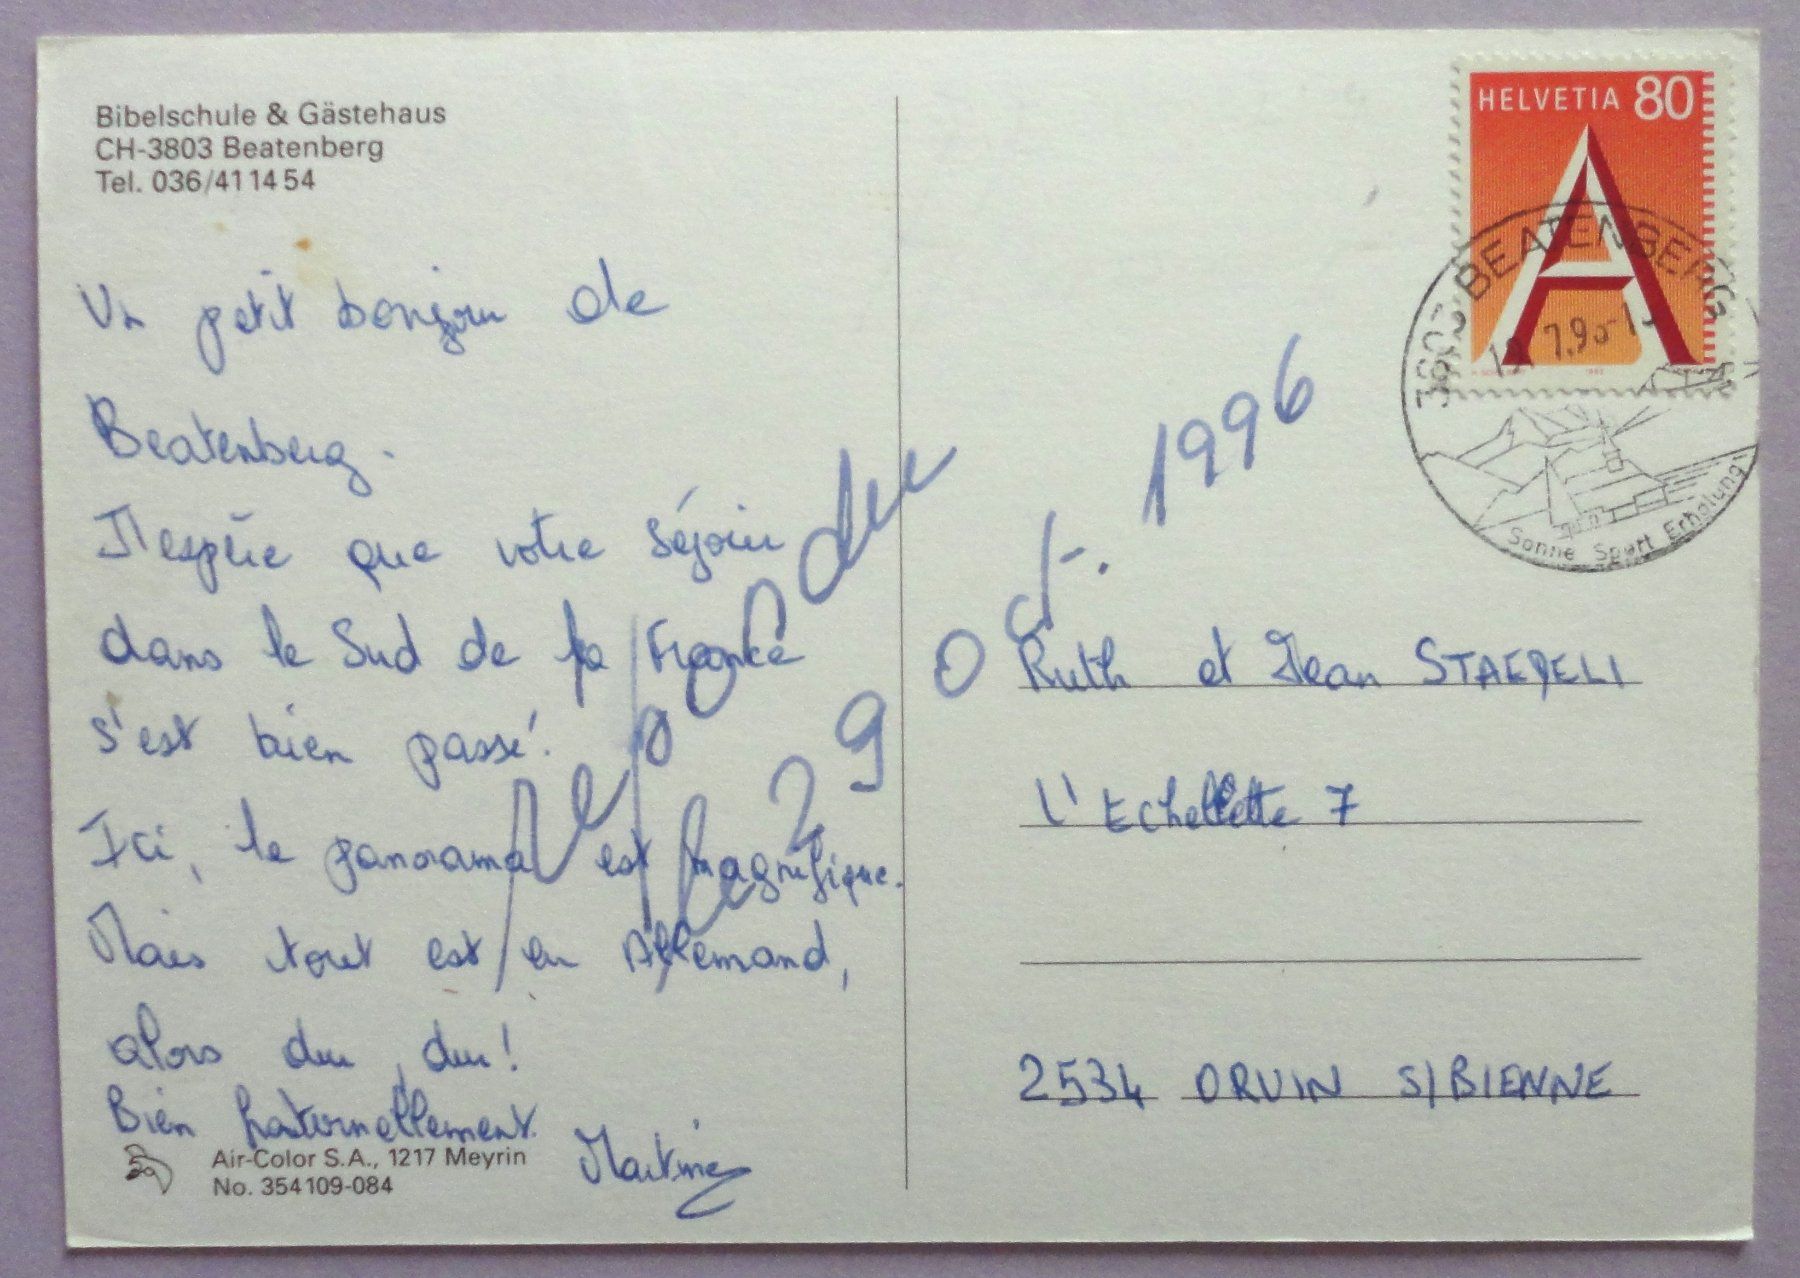 Bibelschule & Gästehaus
CH-3803 Beatenberg
Tel. 036/41 14 54
Un petit bonjour de
Beatenberg.
J'espère que votre séjour
dans le Sud de la France
s'est bien passé.
Ici, le panorama est magnifique.
Mais tout est en Allemand,
alors dur, dur!
Bien fraternellement.
Martine
Air-Color S.A., 1217 Meyrin
No. 354109-084
répondu
le 29 Oct. 1996
HELVETIA 80
A
3803 BEATENBERG
Sonne Sport Erholung
Ruth et Jean STAEPELI
L'Echelette 7
2534 ORVIN S/BIENNE